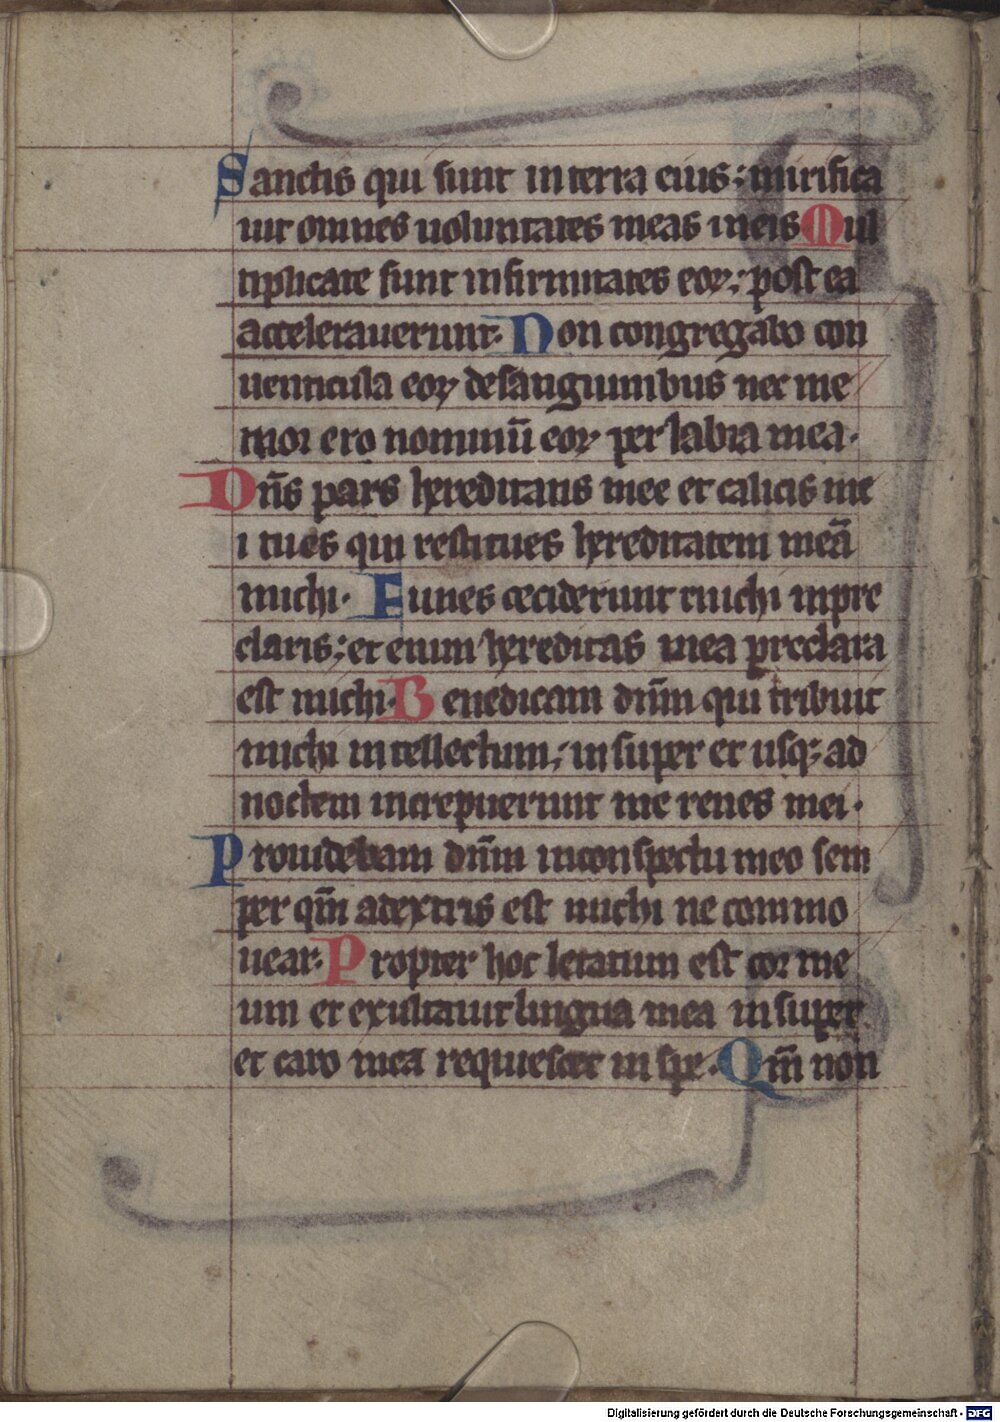 Sanctis qui sunt in terra eius: mirifica
uit omnes uoluntates meas in eis Mul
tiplicate sunt infirmitates eoꝝ: post ea
accelerauerunt. Non congregabo con
uenticula eoꝝ de sanguinibus nec me
mor ero nominū eoꝝ per labia mea.
Dn̄s pars hereditatis mee et calicis me
i tu es qui restitues hereditatem meā
michi. Funes ceciderunt michi in pre
claris: et enim hereditas mea preclara
est michi. Benedicam dn̄m qui tribuit
michi intellectum: insuper et usq; ad
noctem increpuerunt me renes mei.
Prouidebam dn̄m in conspectu meo sem
per qm̄ adextris est michi ne commo
uear. Propter hoc letatum est cor me
um et exultauit lingua mea insuper
et caro mea requiescet in spe. Qm̄ non
Digitalisierung gefördert durch die Deutsche Forschungsgemeinschaft - DFG